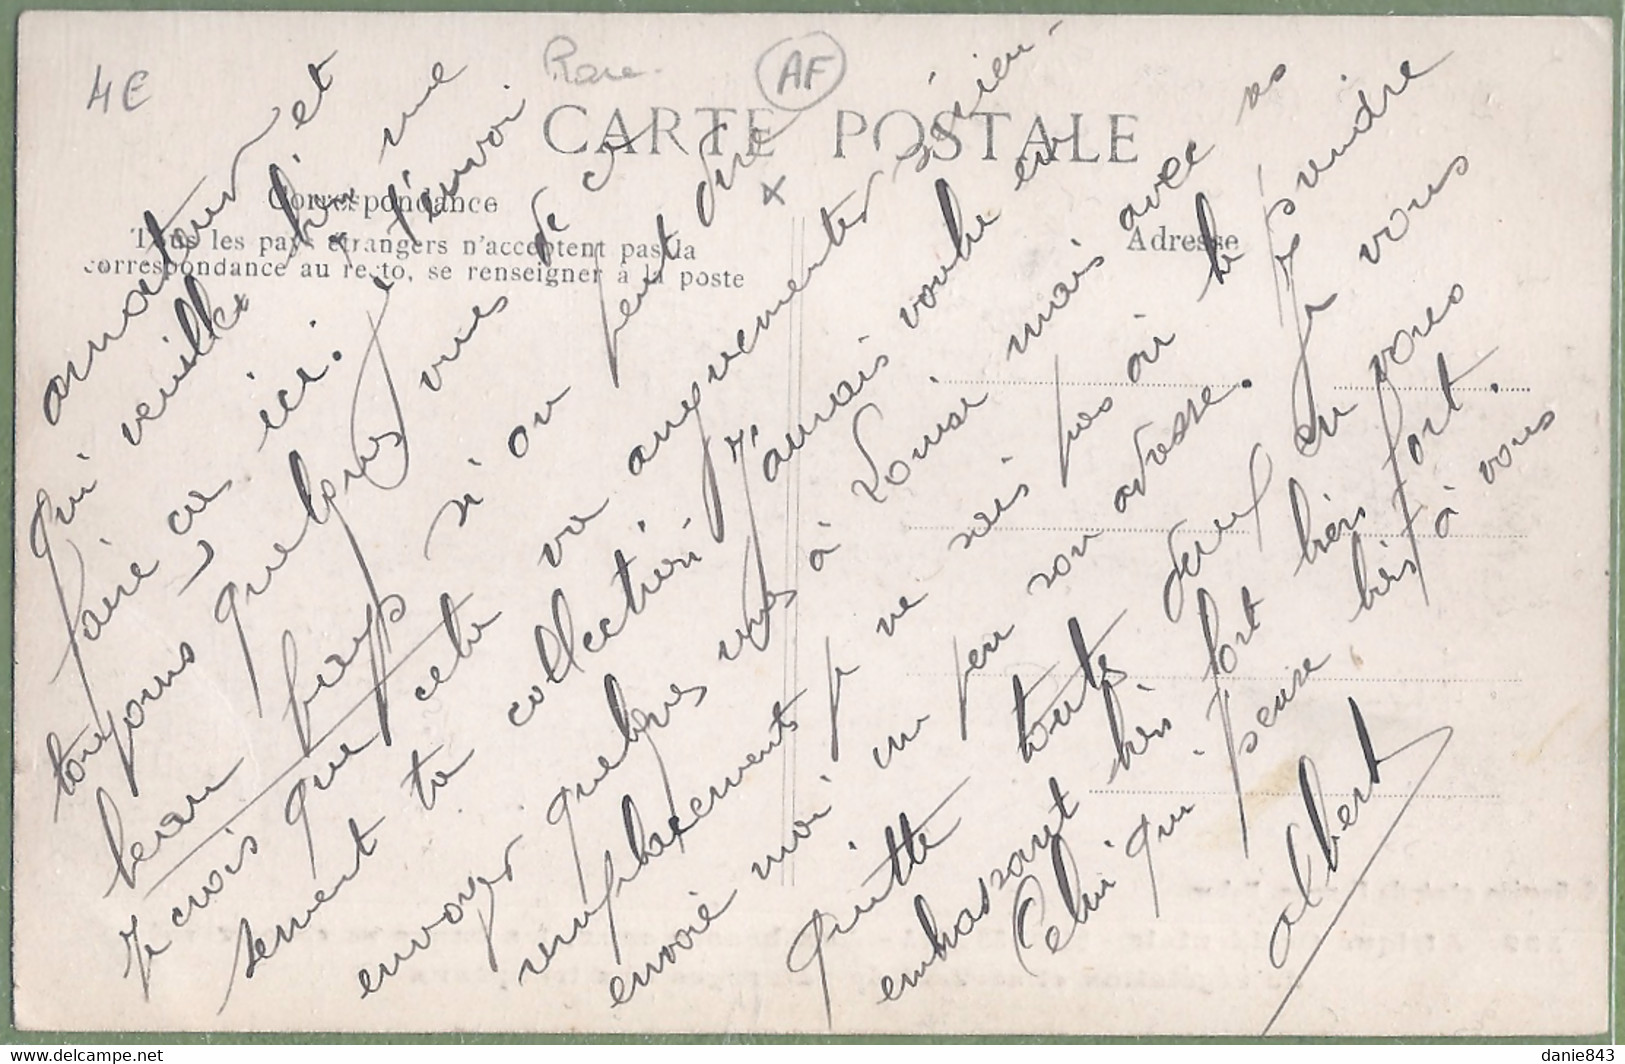 4E
Rare
AF
CARTE POSTALE
Correspondance
Tous les pays étrangers n'acceptent pas la
correspondance au recto, se renseigner à la poste
Adresse
amateur et
qui veuillez bien me
faire ça ici. j'envoi
toujours quelques vues de ce
beau pays si on peut dire
Je crois que cette va augmenter sérieu-
sement ta collection. J'aurais voulu en
envoyer quelques unes à Louise mais avec ses
remplacements je ne sais pas où la prendre
envoie moi un peu son adresse. Je vous
quitte toutes deux en vous
embrassant très fort très fort.
Celui qui pense très à vous
Albert
danie843